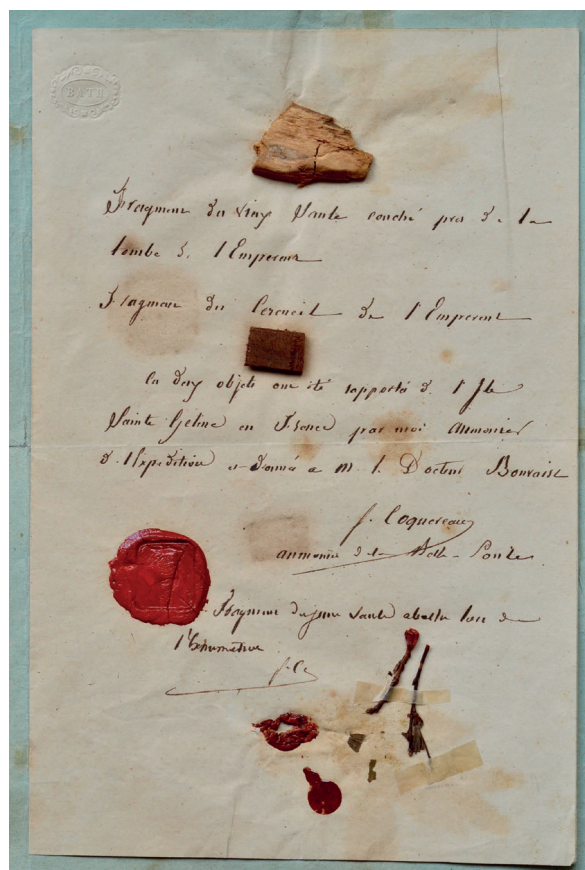 BATH
Fragment du vieux Saule couché près de la
tombe de l'Empereur
Fragment du Cercueil de l'Empereur
Ces deux objets ont été rapportés de l'Ile
Sainte Hélène en France par moi aumonier
de l'Expédition et donné a M. le Docteur
f. Coquereau
aumonier de la Belle-Poule
Fragment du jeune saule abattu lors de
l'Exhumation
f. C.